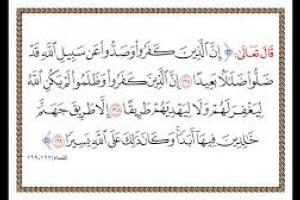 قَالَ تَعَالَى: ﴿ إِنَّ ٱلَّذِينَ كَفَرُوا۟ وَصَدُّوا۟ عَن سَبِيلِ ٱللَّهِ قَدْ
ضَلُّوا۟ ضَلَـٰلًۢا بَعِيدًا إِنَّ ٱلَّذِينَ كَفَرُوا۟ وَظَلَمُوا۟ لَمْ يَكُنِ ٱللَّهُ
لِيَغْفِرَ لَهُمْ وَلَا لِيَهْدِيَهُمْ طَرِيقًا إِلَّا طَرِيقَ جَهَنَّمَ
خَـٰلِدِينَ فِيهَآ أَبَدًا وَكَانَ ذَٰلِكَ عَلَى ٱللَّهِ يَسِيرًا ﴾